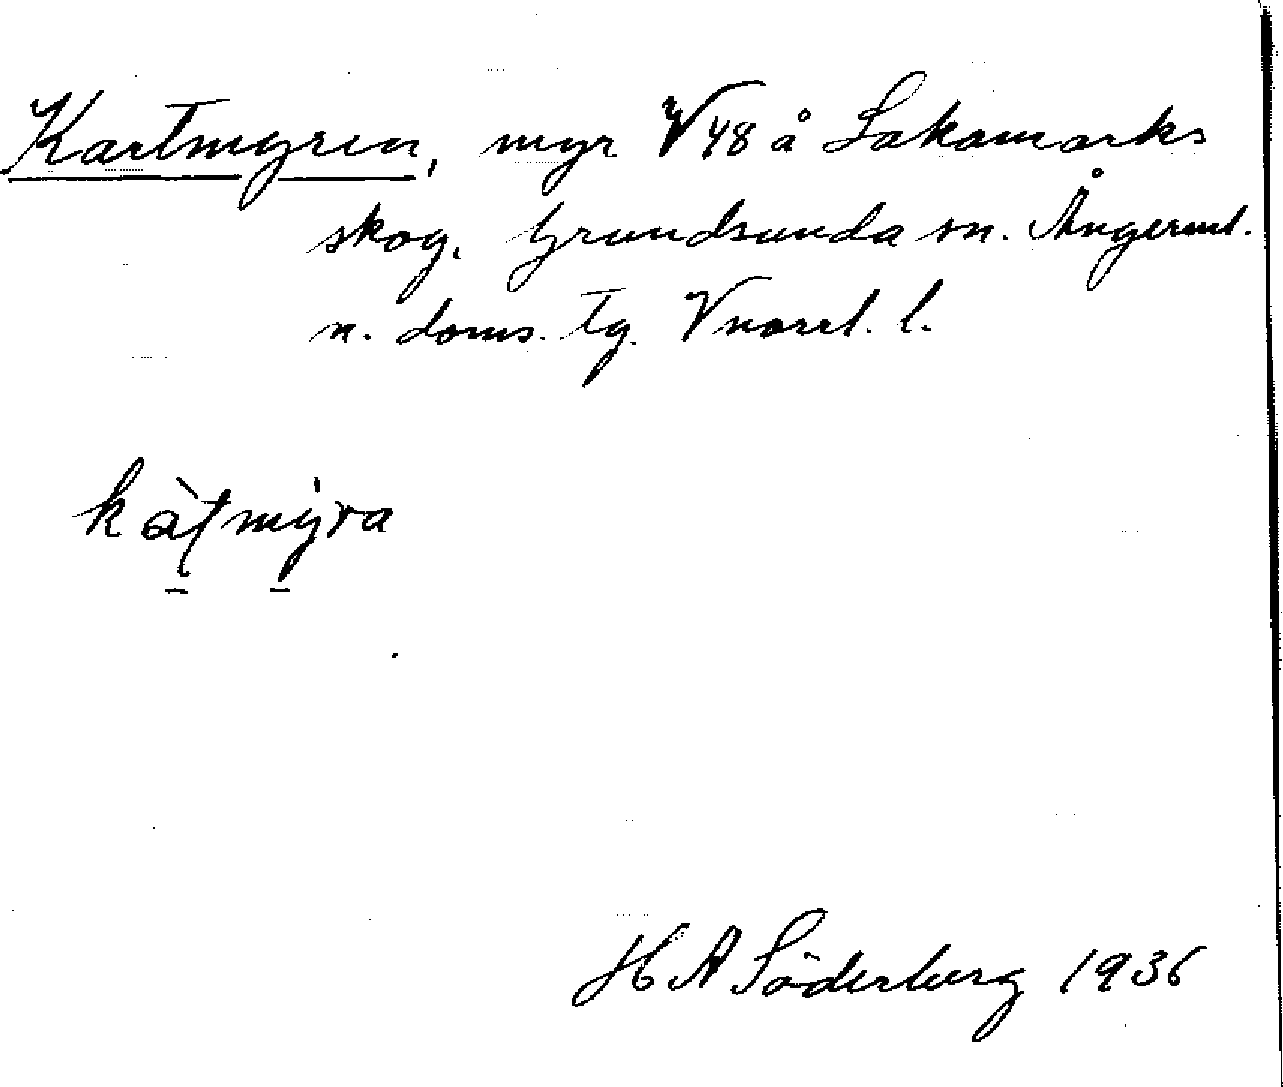 Kartmyren, myr V 48 å Lakamarks
skog. Grundsunda sn. Ångerml.
n. doms. tg. Vnorrl. l.
kàʈmýra
H A Söderberg 1936